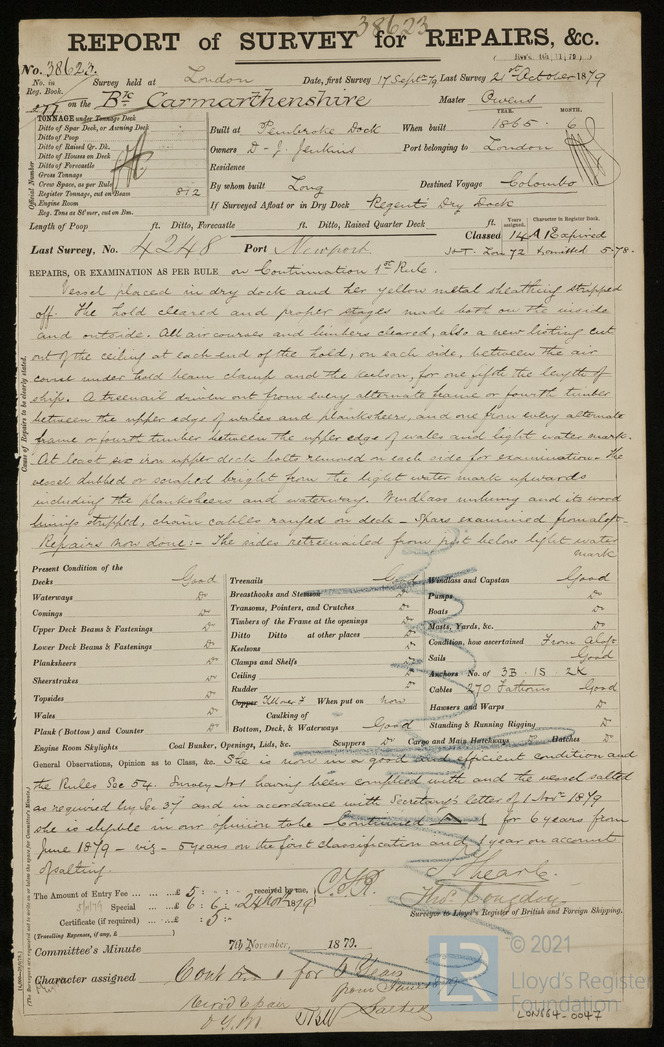 38623
REPORT of SURVEY for REPAIRS, &c.
No. 38623.
No. in Reg. Book. Survey held at London Date, first Survey 17 Sept 79 Last Survey 21st October 1879
277 on the Bk Carmarthenshire Master Owens
TONNAGE under Tonnage Deck
Ditto of Spar Deck, or Awning Deck
Ditto of Poop
Ditto of Raised Qr. Dk.
Ditto of Houses on Deck
Ditto of Forecastle
Gross Tonnage
Crew Space, as per Rule
Register Tonnage, cut on Beam 812
Engine Room
Reg. Tons as St'mer, cut on Bm.
Official Number
YEAR. MONTH.
Built at Pembroke Dock When built 1865 6
Owners D. J. Jenkins Port belonging to London
Residence
By whom built Long Destined Voyage Colombo
If Surveyed Afloat or in Dry Dock Regents Dry Dock
Length of Poop ft. Ditto, Forecastle ft. Ditto, Raised Quarter Deck ft.
Years assigned. Character in Register Book.
Classed 14 A1 Expired
Last Survey, No. 4248 Port Newport Lon 72 omitted 5-78.
REPAIRS, OR EXAMINATION AS PER RULE on Continuation 1st Rule.
Vessel placed in dry dock and her yellow metal sheathing stripped
off. The hold cleared and proper stages made both on the inside
and outside. All air courses and limbers cleared, also a new listing cut
out of the ceiling at each end of the hold, on each side, between the air
course under hold beam clamp and the keelson, for one fifth the length of
ship. A treenail driven out from every alternate frame or fourth timber
between the upper edge of wales and planksheers, and one from every alternate
frame or fourth timber between the upper edge of wales and light water mark.
At least six iron upper deck bolts removed on each side for examination. The
vessel dubbed or scraped bright from the light water mark upwards
including the planksheers and waterway. Windlass unhung and its wood
linings stripped, chain cables ranged on deck - Spars examined from aloft.
Repairs now done:- The sides retreenailed from just below light water
mark
Cause of Repairs to be clearly stated.
Present Condition of the
Decks Good
Waterways Do
Comings Do
Upper Deck Beams & Fastenings Do
Lower Deck Beams & Fastenings Do
Planksheers Do
Sheerstrakes Do
Topsides Do
Wales Do
Plank (Bottom) and Counter Do
Engine Room Skylights
Treenails Good
Breasthooks and Stemson Do
Transoms, Pointers, and Crutches Do
Timbers of the Frame at the openings Do
Ditto Ditto at other places Do
Keelsons Do
Clamps and Shelfs Do
Ceiling Do
Rudder Do
Copper When put on now
Caulking of
Bottom, Deck, & Waterways Good
Coal Bunker, Openings, Lids, &c. Scuppers Do Cargo and Main Hatchways Do Hatches Do
Windlass and Capstan Good
Pumps Do
Boats Do
Masts, Yards, &c. Do
Condition, how ascertained From Aloft
Sails Good
Anchors No. of 3B. 1S. 2K
Cables 270 Fathoms Good
Hawsers and Warps Do
Standing & Running Rigging Do
General Observations, Opinion as to Class, &c. She is now in a good and efficient condition and
the Rules Sec 54. Survey No 1 having been complied with and the vessel salted
as required by Sec 37 and in accordance with Secretary's letter of 1 Novr 1879
she is eligible in our opinion to be Continued A 1 for 6 years from
June 1879 - viz - 5 years on the first classification and 1 year on account
of salting.
The Amount of Entry Fee ... ... £ 5 : - : - received by me,
Special ... £ 6 : 6 : - 24 Nov 1879
Certificate (if required) ... : 5 : -
(Travelling Expenses, if any, £ )
Thos. Congdon
Surveyor to Lloyd's Register of British and Foreign Shipping.
Committee's Minute 7th November, 1879.
Character assigned Cont A 1 for 6 Years
from June
Salted
© 2021
LR
Lloyd's Register
Foundation
LON664-0047